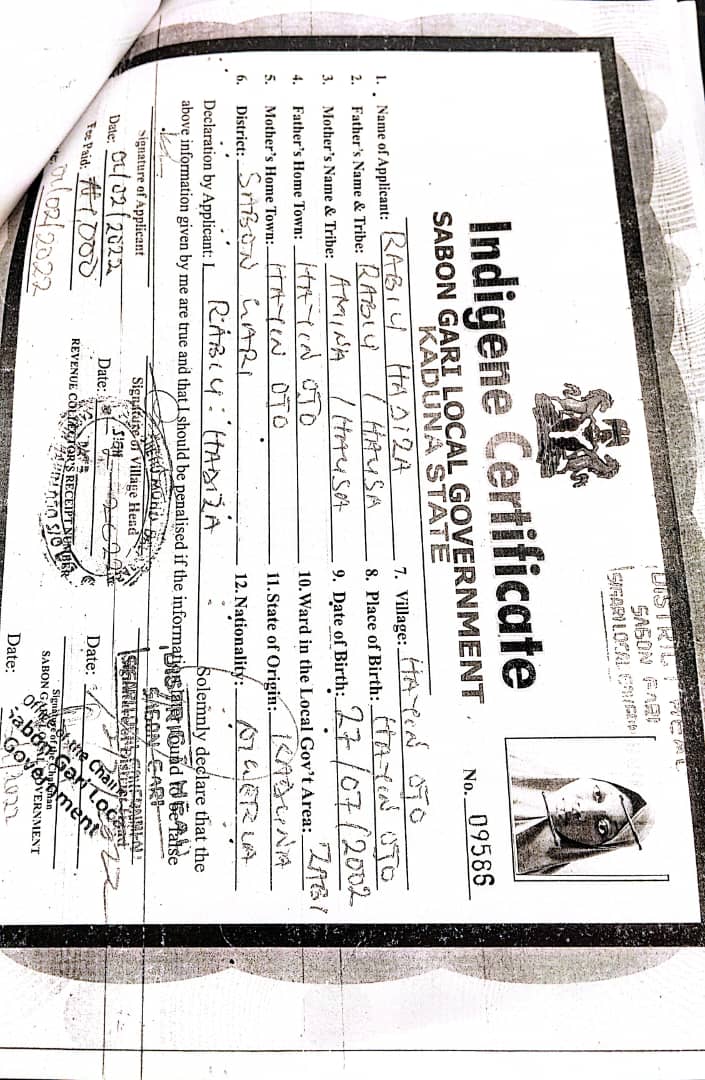 Indigene Certificate
SABON GARI LOCAL GOVERNMENT
KADUNA STATE
SABON GARI
S/GARI LOCAL
No. 09586
1. Name of Applicant: RABIU HADIZA
2. Father's Name & Tribe: RABIU / HAUSA
3. Mother's Name & Tribe: AMINA / HAUSA
4. Father's Home Town: HAYIN OJO
5. Mother's Home Town: HAYIN OJO
6. District: SABON GARI
7. Village: HAYIN OJO
8. Place of Birth: HAYIN OJO
9. Date of Birth: 27/07/2002
10. Ward in the Local Gov't Area: ZABI
11. State of Origin: KADUNA
12. Nationality: NIGERIA
Declaration by Applicant: I RABIU HADIZA Solemnly declare that the
above information given by me are true and that I should be penalised if the information later found to be false
Signature of Applicant
Date: 01/02/2022
Fee Paid: ₦1,000
01/02/2022
Signature of Village Head
Date:
SIGN
DATE
REVENUE COLLECTOR'S RECEIPT NUMBER
SABON GARI
Date:
Signature of the Chairman
SABON GARI LOCAL GOVERNMENT
Office of the Chairman
Sabon Gari Local
Government
Date: